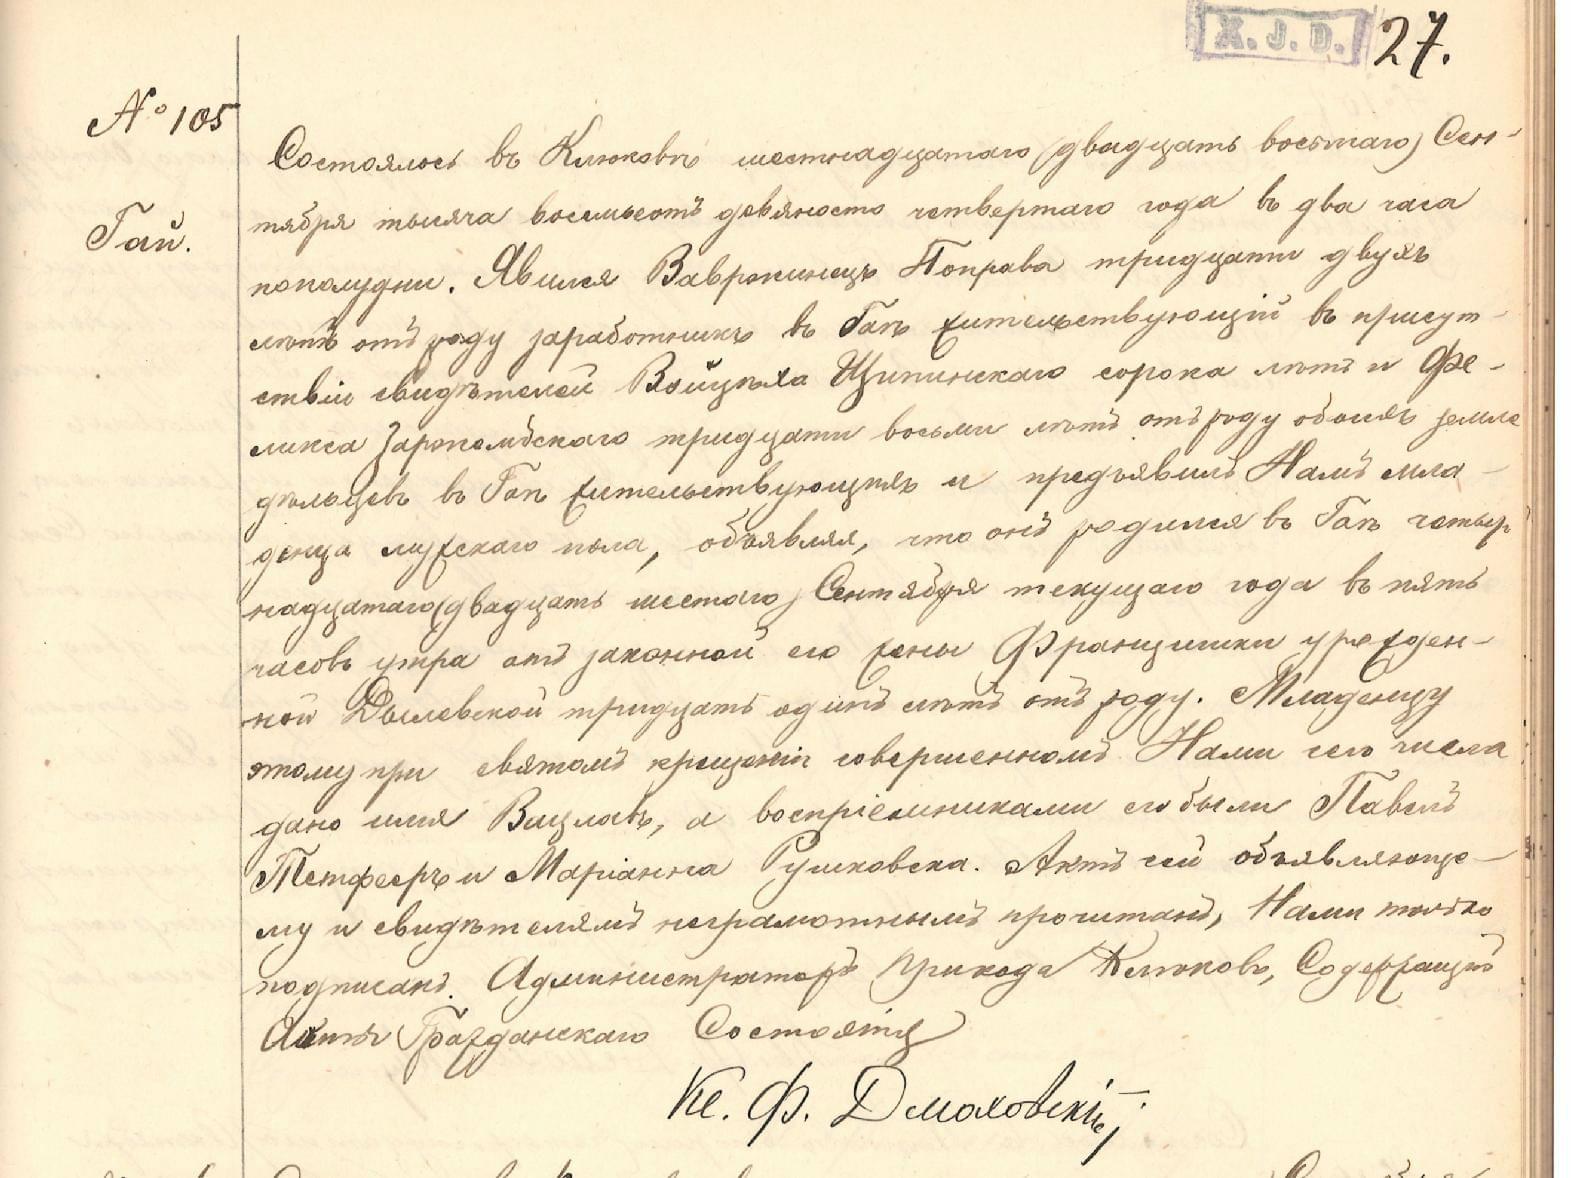 X. J. D. 27.
№ 105
Гай.
Состоялось въ Клюковѣ шестнадцатаго (двадцать восьмаго) Сен-
тября тысяча восемьсотъ девяносто четвертаго года въ два часа
пополудни. Явился Вавржинецъ Поправа тридцати двухъ
лѣтъ отъ роду заработникъ въ Гаѣ жительствующій въ присут-
ствіи свидѣтелей Войцѣха Щипинскаго сорока лѣтъ и Фе-
ликса Зарѣмбскаго тридцати восьми лѣтъ отъ роду обоихъ земле
дѣльцевъ въ Гаѣ жительствующихъ и предъявилъ Намъ мла-
денца мужскаго пола, объявляя, что онъ родился въ Гаѣ четыр
надцатаго (двадцать шестаго) Сентября текущаго года въ пять
часовъ утра отъ законной его жены Францишки урожден-
ной Дылевской тридцать одинъ лѣтъ отъ роду. Младенцу
этому при святомъ крещеніи совершенномъ Нами сего числа
дано имя Вацлавъ, а воспріемниками его были Павелъ
и Маріанна Рушковска. Актъ сей объявляюще-
му и свидѣтелямъ неграмотнымъ прочитанъ, Нами только
подписанъ. Администраторъ Прихода Клюковъ, Содержащій
Акты Гражданскаго Состоянія
Кс. Ф. Дмоховскій